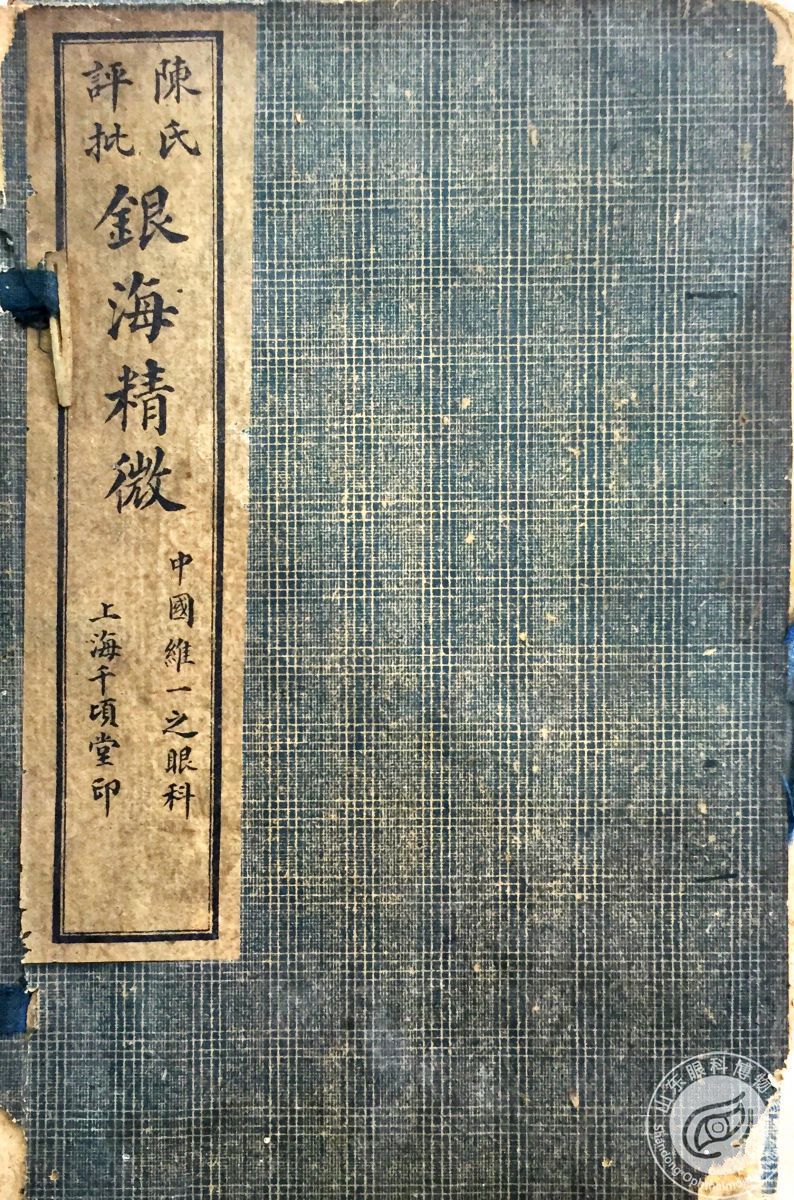 陳氏
評批
銀海精微
中國維一之眼科
上海千頃堂印
山东眼科博物
Shandong Oph